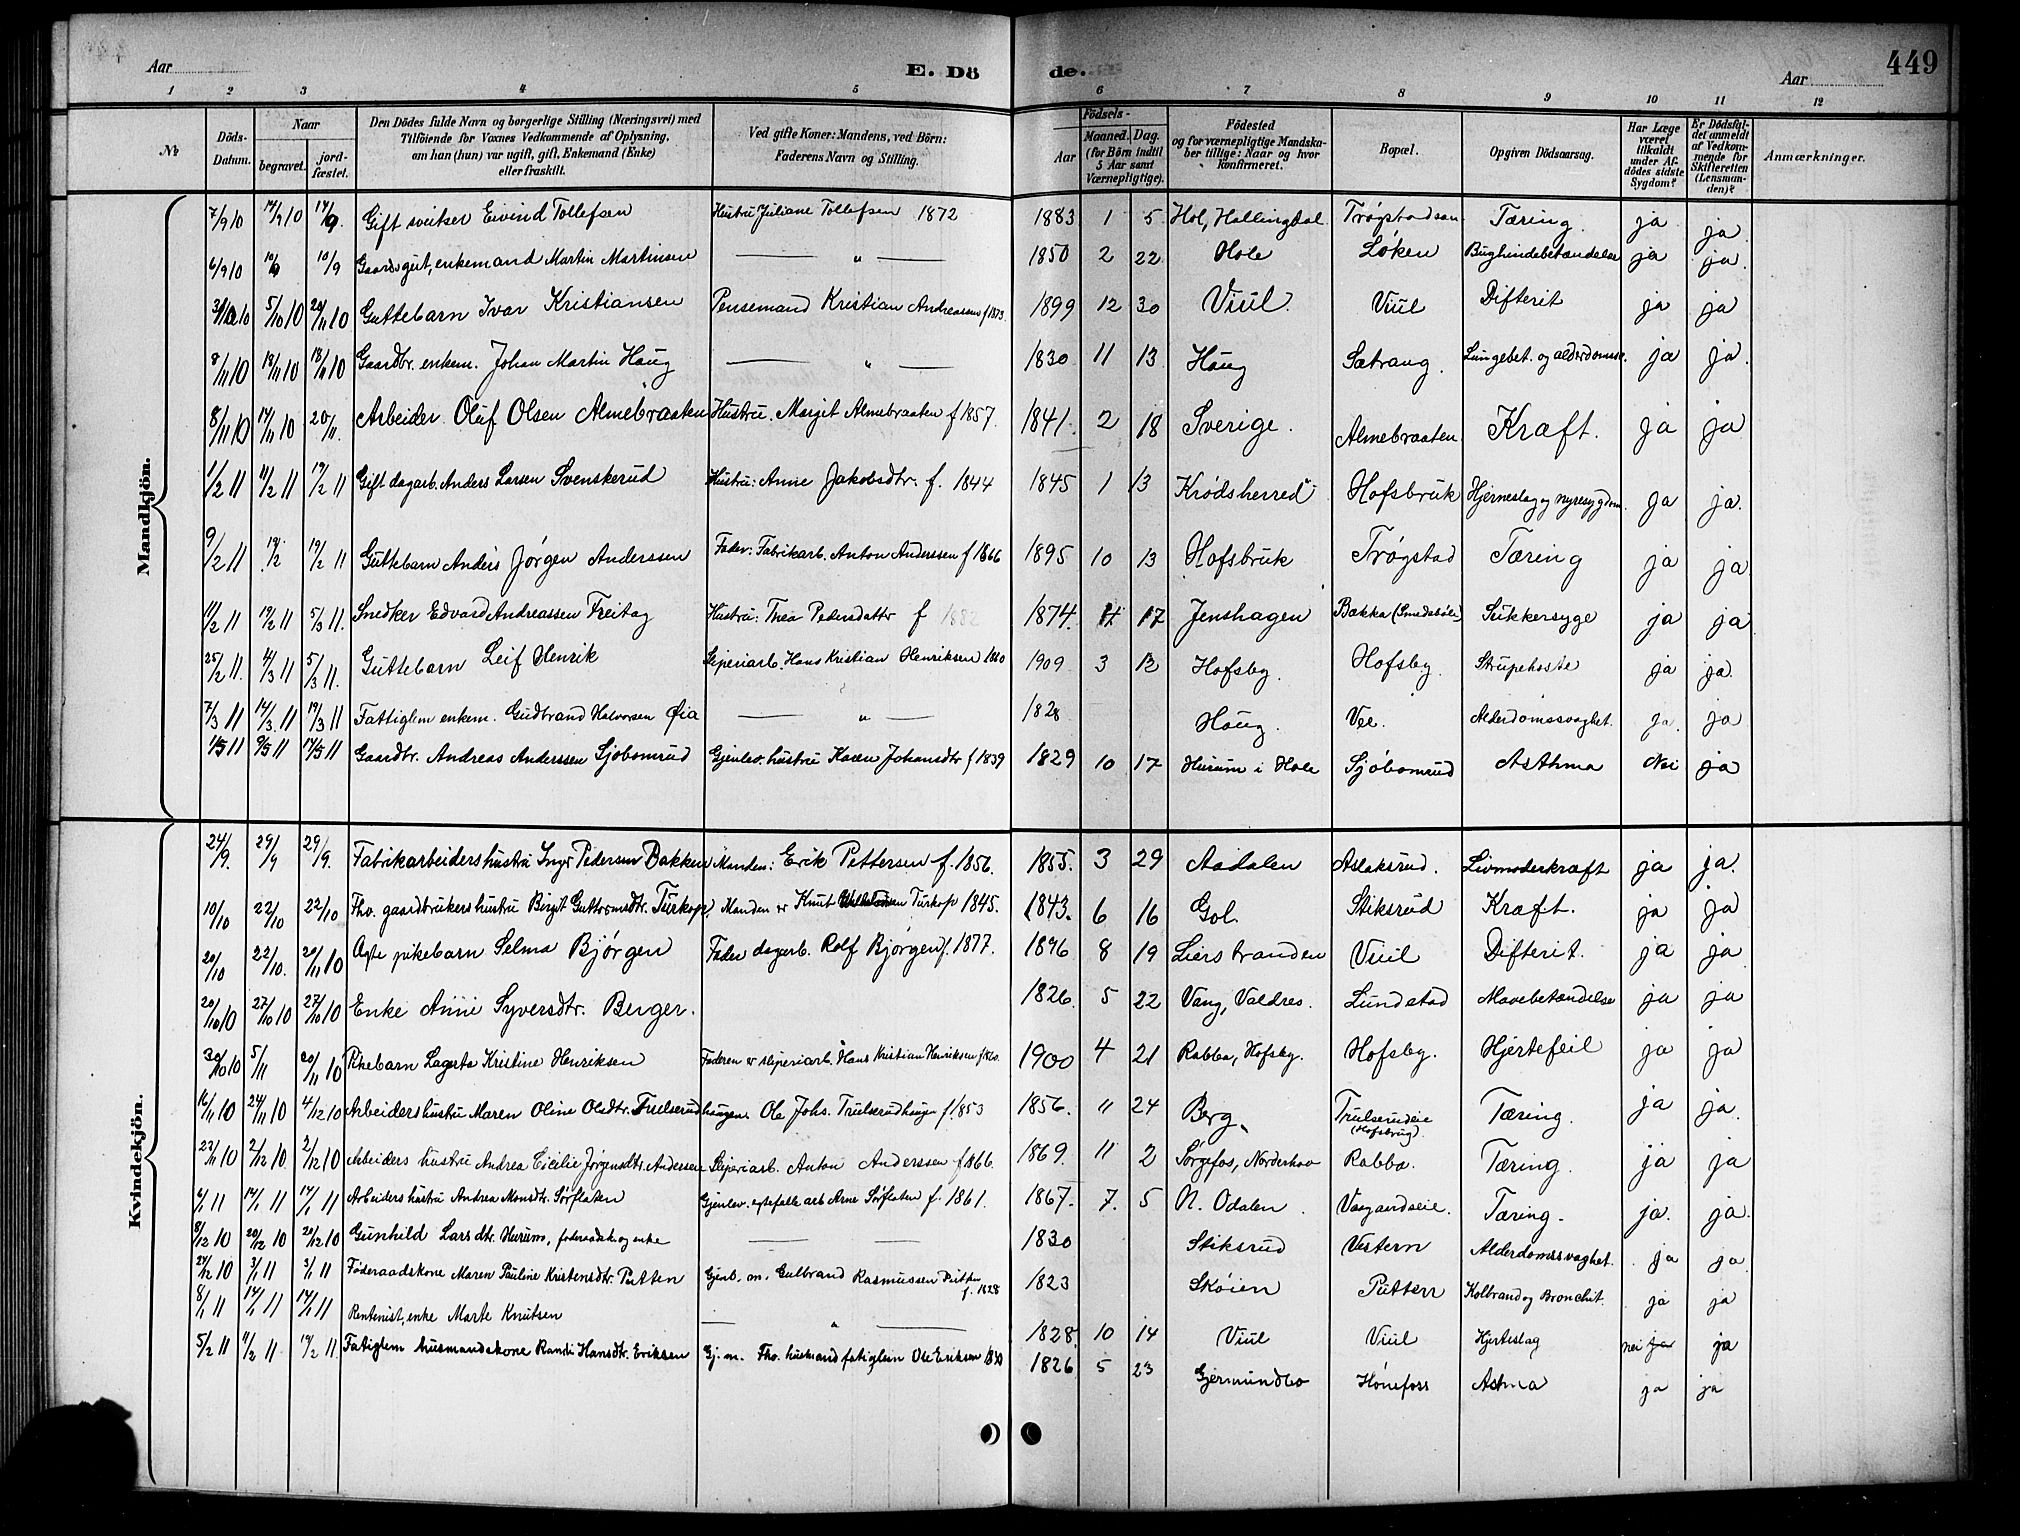 449
Aar E. Dö de. Aar
1 2 3 4 5 6 7 8 9 10 11 12
No. Döds-Datum. Naar begravet. jordfæstet. Den Dödes fulde Navn og borgerlige Stilling (Næringsvei) med Tilföiende for Voxnes Vedkommende af Oplysning, om han (hun) var ugift, gift, Enkemand (Enke) eller fraskilt. Ved gifte Koner: Mandens, ved Börn: Faderens Navn og Stilling. Födsels- Aar Maaned. Dag. (for Börn indtil 5 Aar samt Værnepligtige). Födested og for værnepligtige Mandskaber tillige: Naar og hvor konfirmeret. Bopæl. Opgiven Dödsaarsag. Har Læge været tilkaldt under Afdödes sidste Sygdom? Er Dödsfaldet anmeldt af Vedkommende for Skifteretten (Lensmanden)? Anmærkninger.
Mandkjön.
7/9 10 14/9 10 14/9. Gift sveitser Eivind Tollefsen Hustru Juliane Tollefsen 1872 1883 1 5 Hol, Hallingdal Trøgstadsan Tæring. ja ja
6/9 10 10/9 10/9 Gaardsgut, enkemand Martin Martinsen — " — 1850 2 22 Hole Løken Bughindebetændelse ja ja.
5/10 10 20/11 10 Guttebarn Ivar Kristiansen Pensemand Kristian Andreassen f 1873. 1899 12 30 Viul. Viul Difterit ja ja
8/11 10 18/11 10 18/11 10 Gaardbr. enkem. Johan Martin Haug — " — 1830 11 13 Haug Sætrang. Lungebet. og alderdomss. ja ja.
8/11 10 17/11 10 20/11. Arbeider Oluf Olsen Almebraaten Hustru. Margit Almebraaten f 1857. 1841. 2 18 Sverige. Almebraaten Kræft. ja ja
1/2 11 11/2 11 19/2 11 Gift dagarb. Anders Larsen Svenskerud Hustru: Anne Jakobsdtr. f. 1844 1845 1 13 Krødsherred Hofsbruk Hjerneslag og nyresygdom. ja ja.
9/2 11 19/2 19/2 11 Guttebarn Anders Jørgen Anderssen Fader: Fabrikarb. Anton Anderssen f 1866 1895 10 13 Hofsbruk Trøgstad Tæring ja ja
11/2 11 19/2 11 5/3 11. Snedker Edvard Andreassen Freitag Hustru: Thea Pedersdatter f 1882 1874. 17 Jenshagen Bækka (Smedsbøle) Sukkersyge ja ja
25/2 11. 4/3 11 5/3 11. Guttebarn Leif Henrik Sliperiarb. Hans Kristian Henriksen 1860 1909 3 12 Hofsby. Hofsby. Strupehoste ja ja.
7/3 11 14/3 11 19/3 11 Fattiglem enkem. Gudbrand Halvorsen Øia — " — 1828 Haug. Vee. Alderdomssvaghet. ja. ja
1/5 11 9/5 11 14/5 11 Gaardbr. Andreas Anderssen Sjøbomrud Gjenlev. hustru Karen Johansdtr f 1839 1829 10 17 Hurum i Hole Sjøbomrud Asthma Nei ja
Kvindekjön.
24/9. 29/9 29/9. Fabrikarbeiders hustru Ingr. Pedersen Bakken Manden: Erik Pettersen f. 1856. 1855. 3 29 Aadalen Aslaksrud. Livmoderkræft ja ja.
10/10 22/10 22/10 Fho. gaardbrukers hustru Birgit Guttormsdtr. Turkop, Manden er Knut Turkop 1845. 1843. 6 16 Gol. Stiksrud Kræft. ja ja
20/10 22/10. 20/11 10 Ægte pikebarn Selma Bjørgen Fader dagarb. Rolf Bjørgen f. 1877. 1896 8 19 Lierstranden Viul Difterit. ja ja
20/10 10 27/10 10 27/10 10 Enke Anne Syversdtr. Berger. 1826. 5 22 Vang, Valdres. Lundstad Mavebetændelse ja ja
30/10 10 5/11 20/11 10 Pikebarn Lagerta Kristine Henriksen Faderen er sliperiarb. Hans Kristian Henriksen f. 1860. 1900 4 21 Rabba, Hofsby. Hofsby. Hjertefeil ja ja
16/11 10 24/11 10 4/12 10 Arbeiders hustru Maren Oline Olsdtr. Trulserudhaugen. Ole Johs. Trulserudhaugen f. 1853 1856. 11 24 Berg. Trulserudeie (Hofsbrug). Tæring. ja ja.
23/11 10 2/12 10 2/12 10 Arbeiders hustru Andrea Cicilie Jørgensdtr. Andersen Sliperiarb. Anton Anderssen f. 1866. 1869. 11 2 Sørgefos, Norderhov Rabba. Tæring. ja ja
6/1 11 14/1 11 14/1 11 Arbeiders hustru Andrea Monsdtr. Sørflaten Gjenlev. egtefælle arb Arne Sørflaten f. 1861. 1867. 7. 5 N. Odalen. Vaagaardseie. Tæring. ja. ja.
8/12 10 20/12 10 20/12 10 Gunhild Larsdtr. Hurum, føderaadsk og enke — — 1830 Stiksrud Vestern Alderdomssvaghet. ja ja
24/12 10 3/1 11 3/1 11 Føderaadskone Maren Pauline Kristensdtr. Putten Gjenl. m. Gulbrand Rasmussen Putten f. 1828 1823 Skøien Putten Kolbrand og Bronchit. ja ja
8/1 11 14/1 11 14/1 11 Rentenist, enke Marte Knutsen — " — 1828 10 14 Viul Viul Hjerteslag nei ja ja
5/2 11 11/2 11 19/2 11 Fatiglem husmandskone Randi Hansdtr. Eriksen Gj. m. Fho. husmand fatiglem Ole Eriksen 1826 5 23 Gjermundbo Hønefoss Astma ja ja